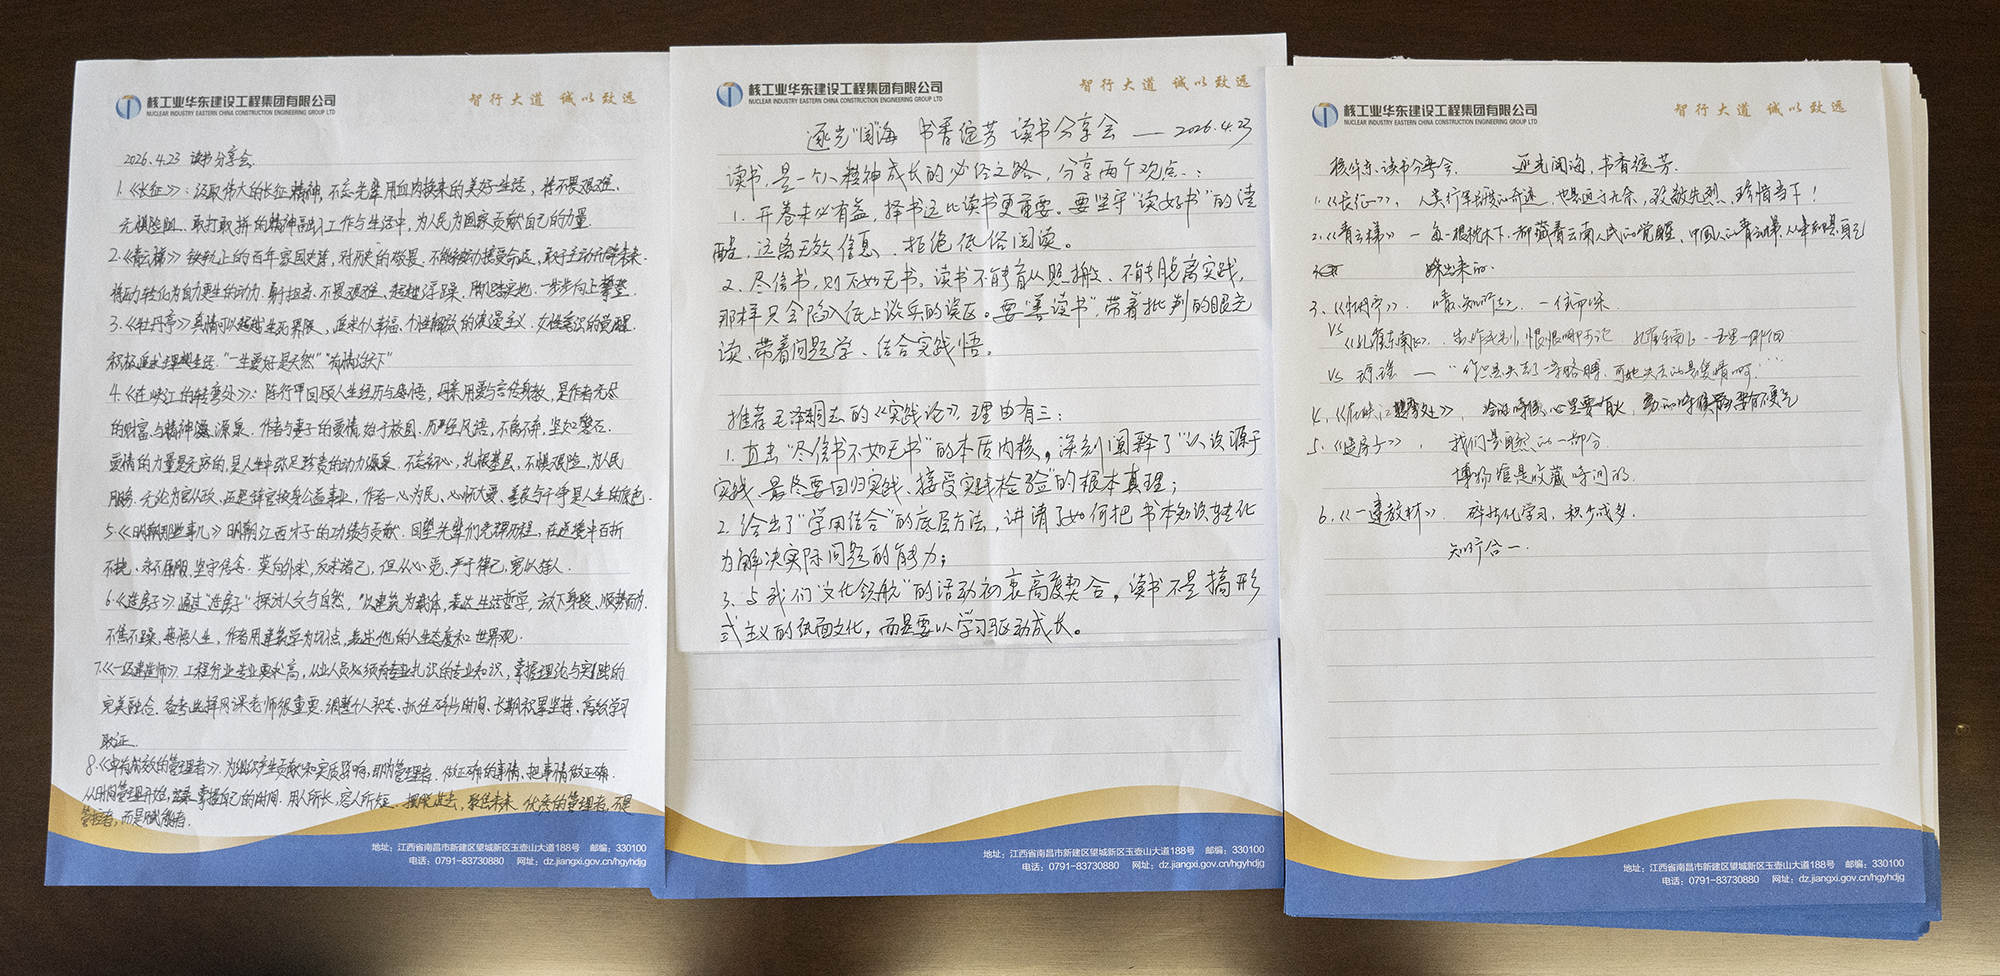 核工业华东建设工程集团有限公司
NUCLEAR INDUSTRY EASTERN CHINA CONSTRUCTION ENGINEERING GROUP LTD
智行大道 诚以致远
2026.4.23 读书分享会.
1.《长征》：汲取伟大的长征精神，不忘先辈用血肉换来的美好生活，将不畏艰难、
无惧险阻、敢打敢拼的精神融入工作与生活中，为人民为国家贡献自己的力量.
2.《青云梯》铁轨上的百年家国史诗，对历史的敬畏.不能被动接受命运，敢于主动开辟未来.
将压力转化为自力更生的动力.勇于担当、不畏艰难、超越浮躁、脚踏实地.一步步向上攀登.
3.《牡丹亭》真情可以超越生死界限、追求个幸福、个性解放的浪漫主义.女性意识的觉醒.
积极追求理想生活."一生爱好是天然""有情 天下"
4.《在峡江的转弯处》：陈行甲回顾人生经历与感悟，母亲用爱与言传身教，是作者无尽
的财富与精神源泉.作者与妻子的爱情始于校园、历经风语，不离不弃，坚如磐石.
爱情的力量是无穷的，是人生中弥足珍贵的动力源泉.不忘初心，扎根基层，不惧艰险，为人民
服务.无论为官从政、还是辞官投身公益事业，作者一心为民、心怀大爱.善良与干净是人生的底色.
5.《明朝那些事儿》明朝江西才子的功绩与贡献.回望先辈们光辉历程，在逆境中百折
不挠、永不屈服，坚守信念.莫向外求，反求诸己，但从心觅、严于律己，宽以待人.
6.《造房子》通过"造房子"探讨人文与自然，"以建筑为载体，表达生活哲学，放下身段、顺势而为.
不焦不躁，感悟人生，作者用建筑学为切点，表述他的人生态度和世界观.
7.《一级建造师》.工程行业专业要求高，从业人员必须有专业扎识的专业知识，掌握理论与实践的
完美融合.备考选择网课老师很重要.调整个人状态、抓住碎片时间、长期积累坚持、高效学习
取证.
8.《卓有成效的管理者》.为组织产生贡献和实质影响，即为管理者.做正确的事情、把事情做正确.
从时间管理开始，掌握自己的时间.用人所长，容人所短.摆脱过去，聚焦未来.优秀的管理者，不是
管控者，而是赋能者.
地址：江西省南昌市新建区望城新区玉壶山大道188号 邮编：330100
电话：0791-83730880 网址：dz.jiangxi.gov.cn/hgyhdjg
核工业华东建设工程集团有限公司
NUCLEAR INDUSTRY EASTERN CHINA CONSTRUCTION ENGINEERING GROUP LTD
智行大道 诚以致远
逐光"阅"海 书香绽芳 读书分享会 —— 2026.4.23
读书，是一个人精神成长的必经之路，分享两个观点：
1.开卷未必有益，择书远比读书更重要。要坚守"读好书"的清
醒，远离无效信息、拒绝低俗阅读。
2、尽信书，则不如无书。读书不能盲从照搬、不能脱离实践，
那样只会陷入纸上谈兵的误区。要"善读书"，带着批判的眼光
读、带着问题学、结合实践悟。
推荐毛泽东同志的《实践论》，理由有三：
1.直击"尽信书不如无书"的本质内核，深刻阐释了"认识源于
实践、最终要回归实践、接受实践检验"的根本真理；
2.给出了"学用结合"的底层方法，讲清了如何把书本知识转化
为解决实际问题的能力；
3.与我们"文化领航"的活动初衷高度契合，读书不是搞形
式主义的纸面文化，而是要以学习驱动成长。
地址：江西省南昌市新建区望城新区玉壶山大道188号 邮编：330100
电话：0791-83730880 网址：dz.jiangxi.gov.cn/hgyhdjg
核工业华东建设工程集团有限公司
NUCLEAR INDUSTRY EASTERN CHINA CONSTRUCTION ENGINEERING GROUP LTD
智行大道 诚以致远
核华东读书分享会. 逐光阅海，书香绽芳.
1.《长征》， 人类行军 的奇迹，也是 ，致敬先烈，珍惜当下！
2.《青云梯》—每一根枕木下.都藏着云南人民的觉醒、中国人的青云梯，从来都是自己
踩出来的.
3.《牡丹亭》. 情不知所起，一往而深
VS 《孔雀东南飞》. 生人作死别，恨恨那可论 孔雀东南飞.五里一徘徊
VS 琼瑶 —"你只是失去了一条胳膊，可她失去的是爱情啊！…"
4.《在峡江的转弯处》， 冷的时候，心里要有火，
5.《造房子》， 我们是自然的一部分.
博物馆是收藏时间的.
6.《一建教材》. 碎片化学习，积少成多.
知行合一.
地址：江西省南昌市新建区望城新区玉壶山大道188号 邮编：330100
电话：0791-83730880 网址：dz.jiangxi.gov.cn/hgyhdjg